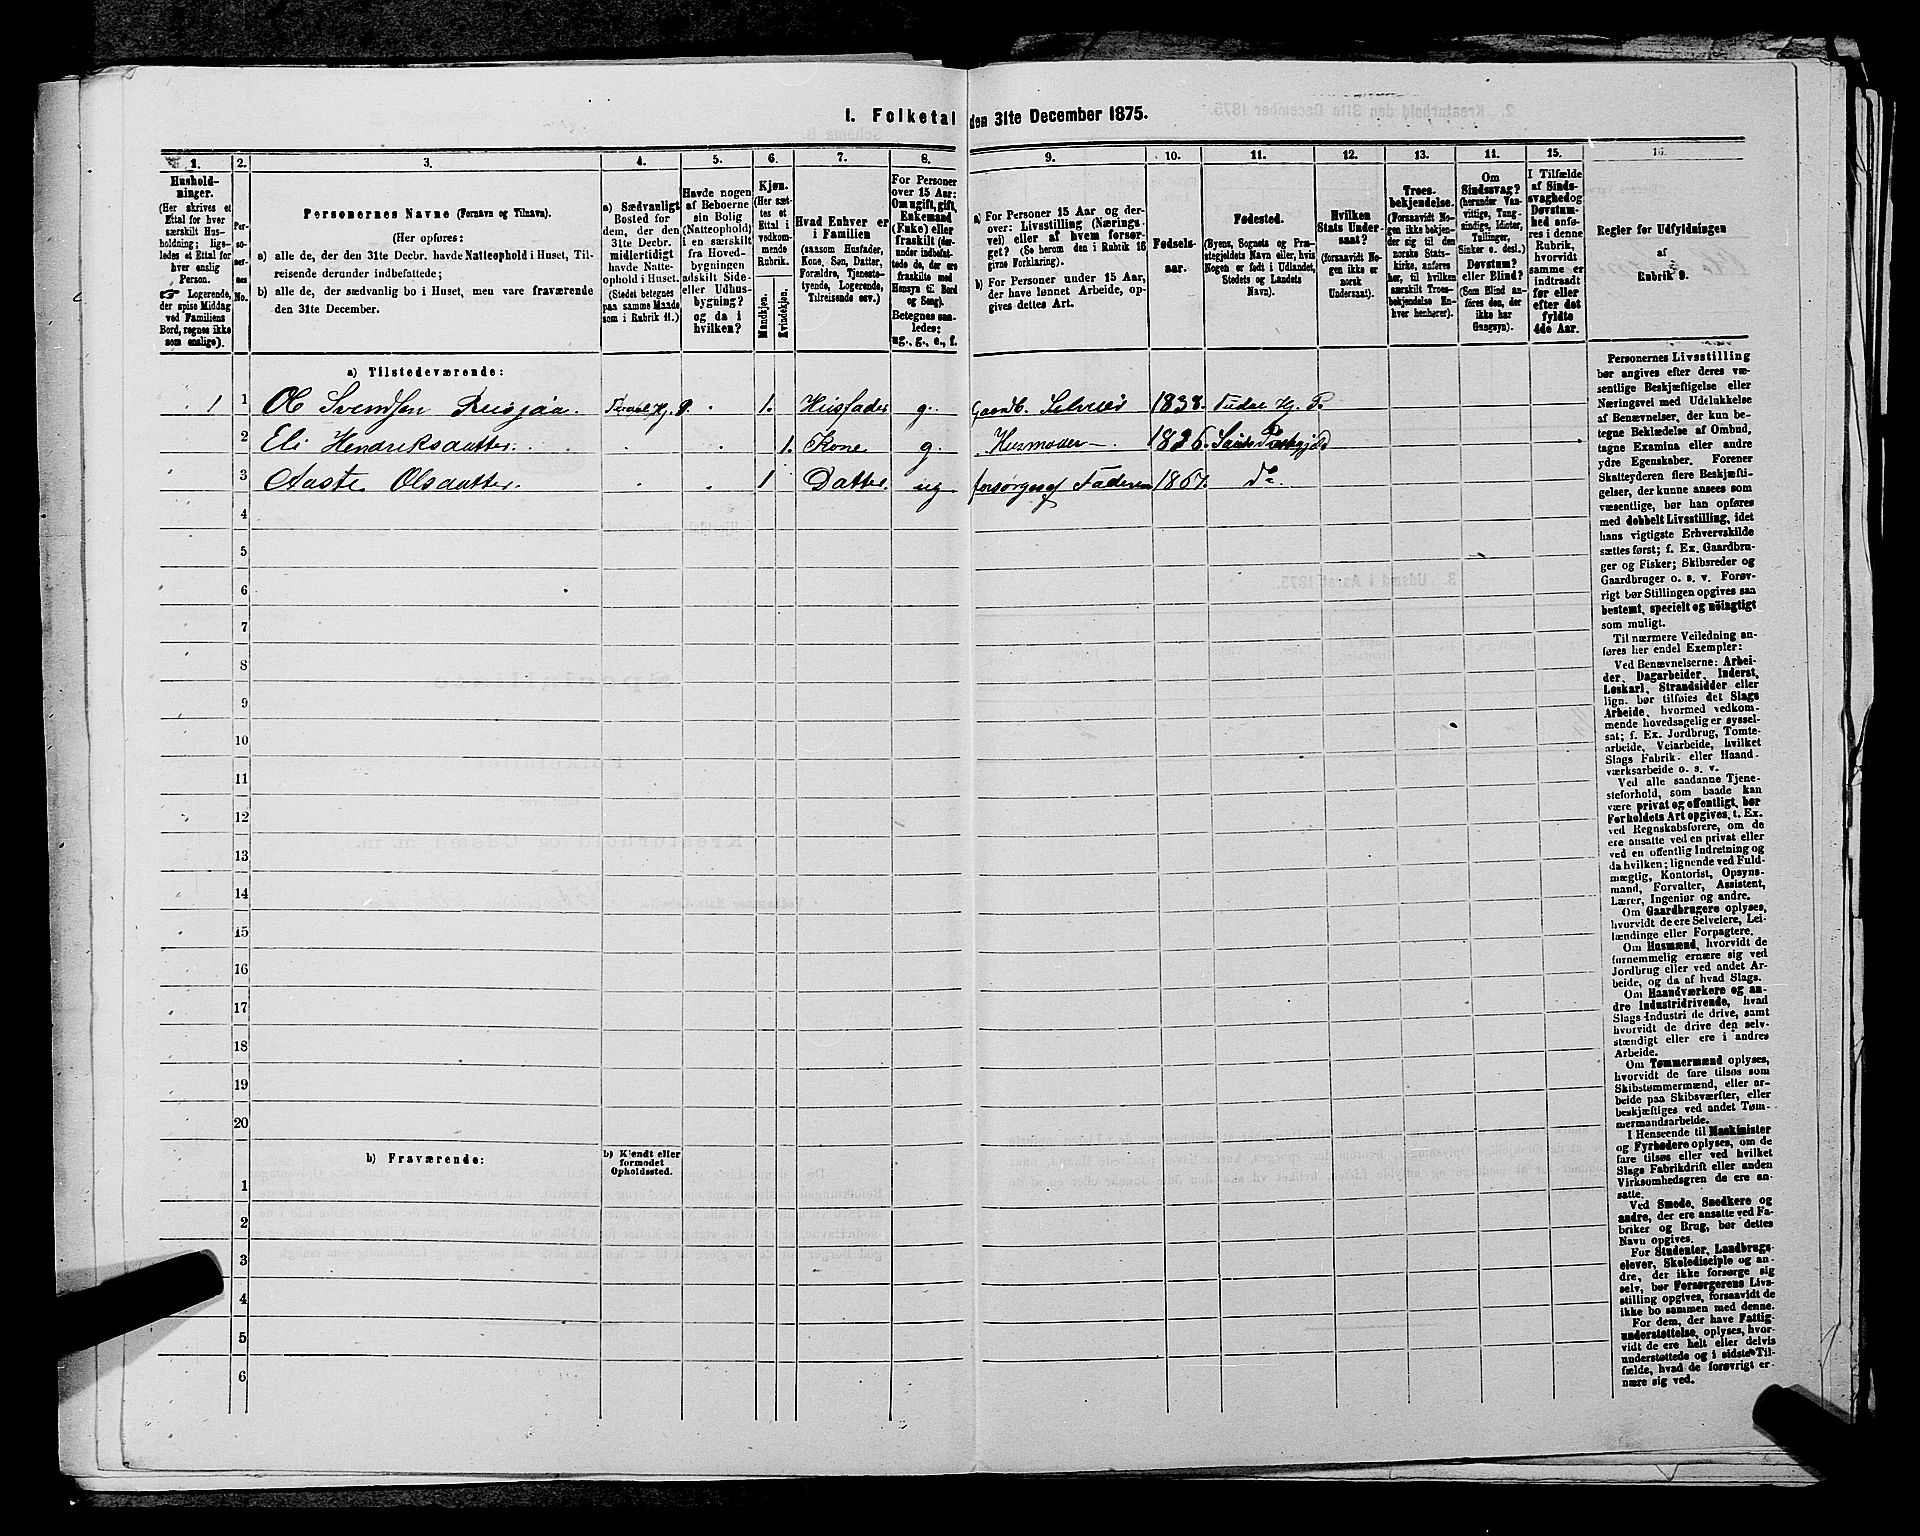 1. Folketal den 31te December 1875.
1. 2. 3. 4. 5. 6. 7. 8. 9. 10. 11. 12. 13. 11. 15. 16.
Hushold-
ninger.
(Her skrives et
Ettal for hver
særskilt Hus-
holdning; lige-
ledes et Ettal for
hver enslig
Person.
☞ Logerende,
der spise Middag
ved Familiens
Bord, regnes ikke
som enslige).
Per-
so-
ner-
nes
No.
Personernes Navne (Fornavn og Tilnavn).
(Her opføres:
a) alle de, der den 31te Decbr. havde Natteophold i Huset, Til-
reisende derunder indbefattede;
b) alle de, der sædvanlig bo i Huset, men vare fraværende
den 31te December.
a) Sædvanligt
Bosted for
dem, der den
31te Decbr.
midlertidigt
havde Natte-
ophold i Huset.
(Stedet betegnes
paa samme Maade
som i Rubrik 11.)
Havde nogen
af Beboerne
sin Bolig
(Natteophold)
i en særskilt
fra Hoved-
bygningen
adskilt Side-
eller Udhus-
bygning?
og da i
hvilken?
Kjøn.
(Her sæt-
tes et
Ettal i
vedkom-
mende
Rubrik.
Mandkjøn.
Kvindekjøn.
Hvad Enhver er
i Familien
(saasom Husfader,
Kone, Søn, Datter,
Forældre, Tjeneste-
tyende, Logerende,
Tilreisende osv.)
For Personer
over 15 Aar:
Om ugift, gift,
Enkemand
(Enke) eller
fraskilt (der-
under indbefat-
tede de, der ere
fraskilte med
Hensyn til Bord
og Seng).
Betegnes saa-
ledes:
ug., g., e., f.
a) For Personer 15 Aar og der-
over: Livsstilling (Nærings-
vei) eller af hvem forsør-
get? (Se herom den i Rubrik 16
givne Forklaring).
b) For Personer under 15 Aar,
der have lønnet Arbeide, op-
gives dettes Art.
Fødsels-
aar.
Fødested.
(Byens, Sognets og Præ-
stegjeldets Navn eller, hvis
Nogen er født i Udlandet,
Stedets og Landets
Navn).
Hvilken
Stats Under-
saat?
(forsaavidt No-
gen ikke er
norsk
Undersaat).
Troes-
bekjendelse.
(Forsaavidt No-
gen ikke bekjen-
der sig til den
norske Stats-
kirke, anføres
her, til hvilken
særskilt Troes-
bekjendelse En-
hver henhører).
Om
Sindssvag?
(herunder Van-
vittige, Tung-
sindige, Idioter,
Tullinger,
Sinker o. desl.)
Døvstum?
eller Blind?
(Som Blind an-
føres den, der
ikke har
Gangsyn).
I Tilfælde
af Sinds-
svaghed og
Døvstum-
hed anfø-
res i denne
Rubrik,
hvorvidt
samme er
indtraadt
før eller
efter det
fyldte
4de Aar.
Regler for Udfyldningen
af
Rubrik 9.
a) Tilstedeværende:
1 1 Ol Svendsen 1. Husfader g. Gaardb. Selveier 1838.
2 Eli Hendriksdatter. 1. Kone g. Husmoder 1826.
3 Aaste Olsdatter. 1 Datter ug forsørges af Faderen 1867. do
4
5
6
7
8
9
10
11
12
13
14
15
16
17
18
19
20
b) Fraværende:
b) Kjendt eller
formodet
Opholdssted.
1
2
3
4
5
6
Personernes Livsstilling
bør angives efter deres væ-
sentlige Beskjæftigelse eller
Næringsvei med Udelukkelse
af Benævnelser, der kun be-
tegne Beklædelse af Ombud,
tagne Examina eller andre
ydre Egenskaber. Forener
Skatteyderen flere Beskjæfti-
gelser, der kunne ansees som
væsentlige, bør han opføres
med dobbelt Livsstilling, idet
hans vigtigste Erhvervskilde
sættes først; f. Ex. Gaardbru-
ger og Fisker; Skibsreder og
Gaardbruger o. s. v. Forøv-
rigt bør Stillingen opgives saa
bestemt, specielt og nøiagtigt
som muligt.
Til nærmere Veiledning an-
føres her endel Exempler:
Ved Benævnelserne: Arbei-
der, Dagarbeider, Inderst,
Løskarl, Strandsidder eller
lign. bør tilføies det Slags
Arbeide, hvormed vedkom-
mende hovedsagelig er syssel-
sat; f. Ex. Jordbrug, Tomte-
arbeide, Veiarbeide, hvilket
Slags Fabrik- eller Haand-
værksarbeide o. s. v.
Ved alle saadanne Tjene-
steforhold, som baade kan
være privat og offentligt, bør
Forholdets Art opgives, t. Ex.
ved Regnskabsførere, om de
ere ansatte ved en privat eller
ved en offentlig Indretning og
da hvilken; lignende ved Fuld-
mægtig, Kontorist, Opsyns-
mand, Forvalter, Assistent,
Lærer, Ingeniør og andre.
Om Gaardbrugere oplyses,
hvorvidt de ere Selveiere, Lei-
lændinge eller Forpagtere.
Om Husmænd, hvorvidt de
fornemmelig ernære sig ved
Jordbrug eller ved andet Ar-
beide, og da af hvad Slags.
Om Haandværkere og an-
dre Industridrivende, hvad
Slags Industri de drive, samt
hvorvidt de drive den selv-
stændigt eller ere i andres
Arbeide.
Om Tømmermænd oplyses,
hvorvidt de fare tilsøs som
Skibstømmermænd, eller ar-
beide paa Skibsværfter, eller
beskjæftiges ved andet Tøm-
mermandsarbeide.
I Henseende til Maskinister
og Fyrbødere oplyses, om de
fare tilsøs eller ved hvilket
Slags Fabrikdrift eller anden
Virksomhedsgren de ere an-
satte.
Ved Smede, Snedkere og
andre, der ere ansatte ved Fa-
briker og Brug, bør dettes
Navn opgives.
For Studenter, Landbrugs-
elever, Skoledisciple og an-
dre, der ikke forsørge sig
selv, bør Forsørgerens Livs-
stilling opgives, forsaavidt de
ikke bo sammen med denne.
For dem, der have Fattig-
understøttelse, oplyses, hvor-
vidt de ere helt eller delvis
understøttede og i sidste Til-
fælde, hvad de forøvrigt er-
nære sig ved.